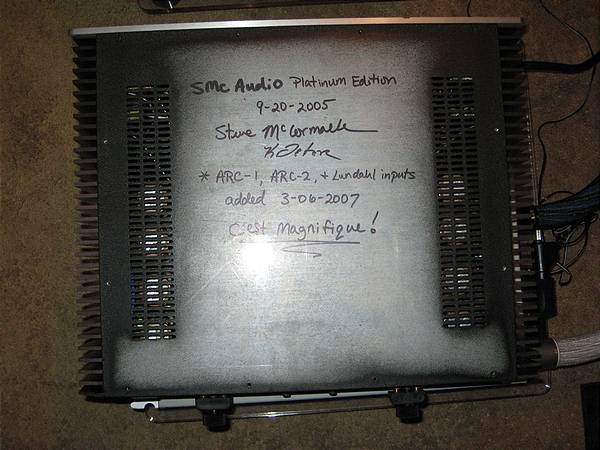 SMc Audio Platinum Edition
9-20-2005
Steve McCormack
* ARC-1, ARC-2, + Lundahl inputs
added 3-06-2007
C'est Magnifique!